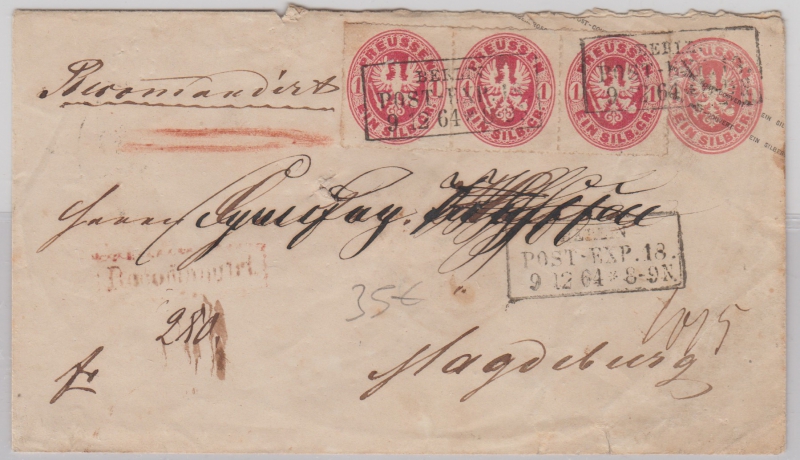 Recomandirt
PREUSSEN 1 1 EIN SILB.GR.
PREUSSEN 1 1 EIN SILB.GR.
PREUSSEN 1 1 EIN SILB.GR.
PREUSSEN EIN SILB.GR.
BERLIN
POST-EXP.
9 12 64
BERLIN
POST-EXP.
9 64
Herrn
BERLIN
POST-EXP. 18.
9 12 64 * 8-9N.
Recommandirt
35€
280
Magdeburg
fr